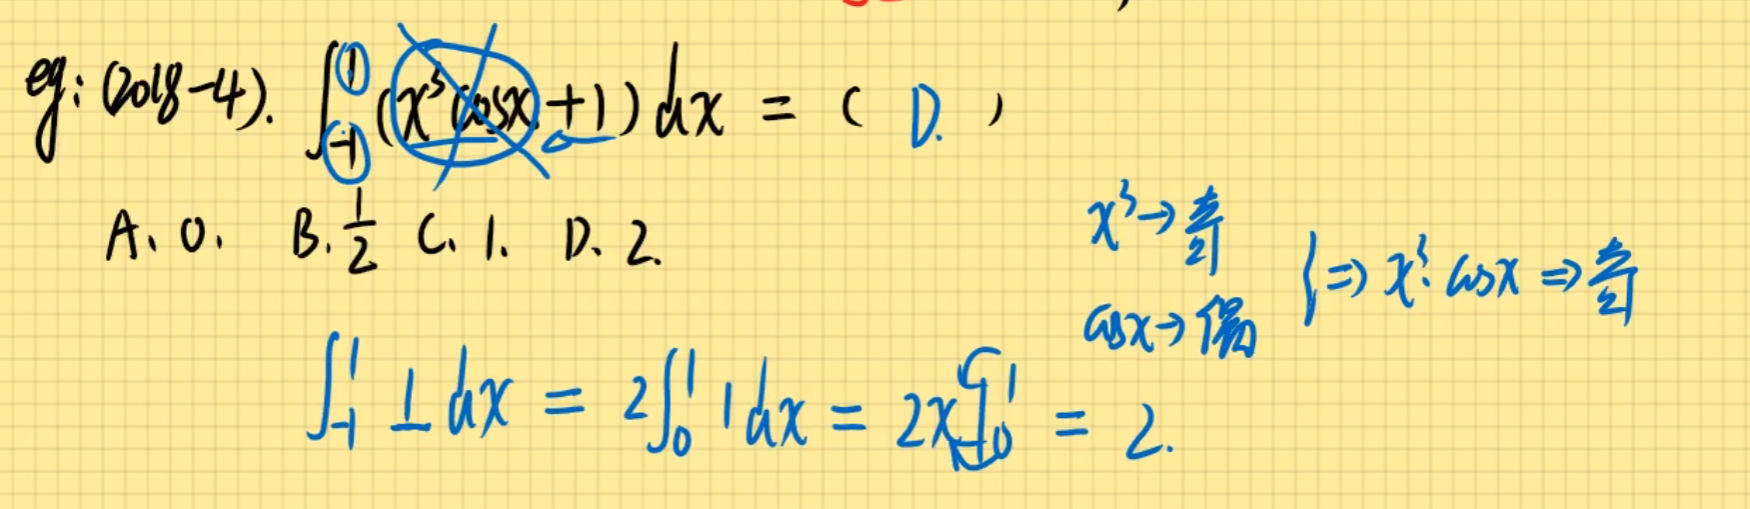 eg: (2018-4). ∫₋₁¹ (x³cosx+1) dx = ( D. )
A、0. B. 1/2 C、1. D、2.
x³→奇
cosx→偶
} ⇒ x³·cosx ⇒奇
∫₋₁¹ 1 dx = 2∫₀¹ 1 dx = 2x|₀¹ = 2.